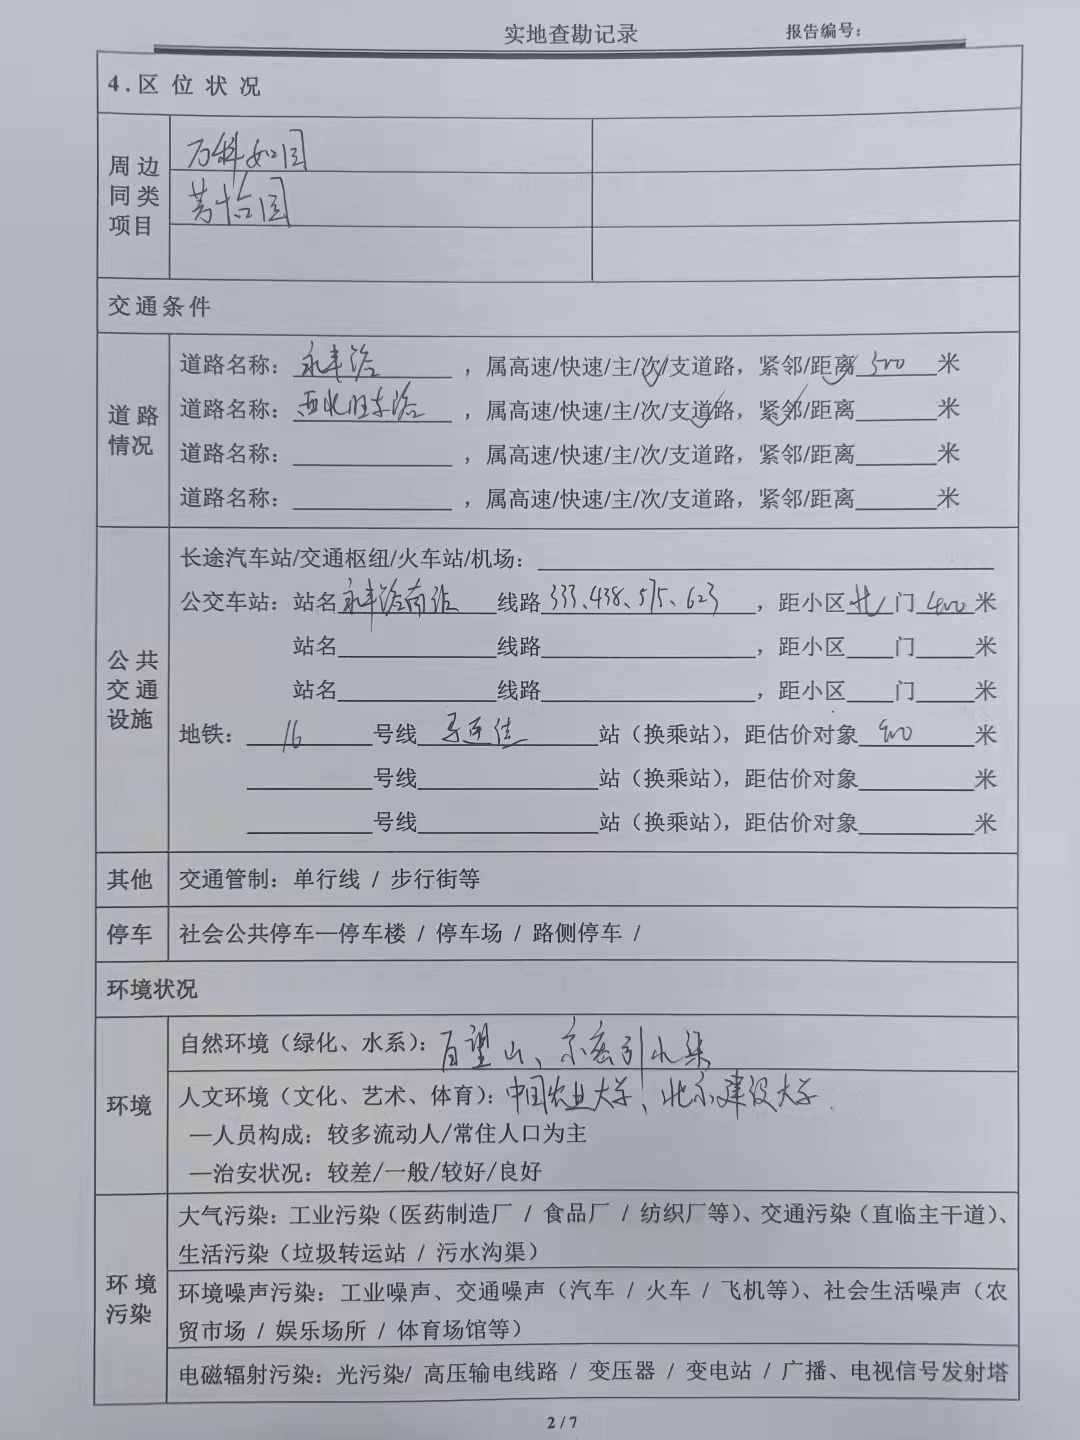 实地查勘记录 报告编号：
4.区位状况
周边同类项目
万科如园
菁怡园
交通条件
道路情况
道路名称：永丰路，属高速/快速/主/次/支道路，紧邻/距离300米
道路名称：西北旺东路，属高速/快速/主/次/支道路，紧邻/距离米
道路名称：，属高速/快速/主/次/支道路，紧邻/距离米
道路名称：，属高速/快速/主/次/支道路，紧邻/距离米
公共交通设施
长途汽车站/交通枢纽/火车站/机场：
公交车站：站名永丰路南站线路333、438、575、623，距小区北门400米
站名线路，距小区门米
站名线路，距小区门米
地铁：16号线马连洼站（换乘站），距估价对象900米
号线站（换乘站），距估价对象米
号线站（换乘站），距估价对象米
其他 交通管制：单行线 / 步行街等
停车 社会公共停车—停车楼 / 停车场 / 路侧停车 /
环境状况
环境
自然环境（绿化、水系）：百望山、京密引水渠
人文环境（文化、艺术、体育）：中国农业大学、北京建设大学.
—人员构成：较多流动人/常住人口为主
—治安状况：较差/一般/较好/良好
环境污染
大气污染：工业污染（医药制造厂 / 食品厂 / 纺织厂等）、交通污染（直临主干道）、
生活污染（垃圾转运站 / 污水沟渠）
环境噪声污染：工业噪声、交通噪声（汽车 / 火车 / 飞机等）、社会生活噪声（农
贸市场 / 娱乐场所 / 体育场馆等）
电磁辐射污染：光污染/ 高压输电线路 / 变压器 / 变电站 / 广播、电视信号发射塔
2 / 7